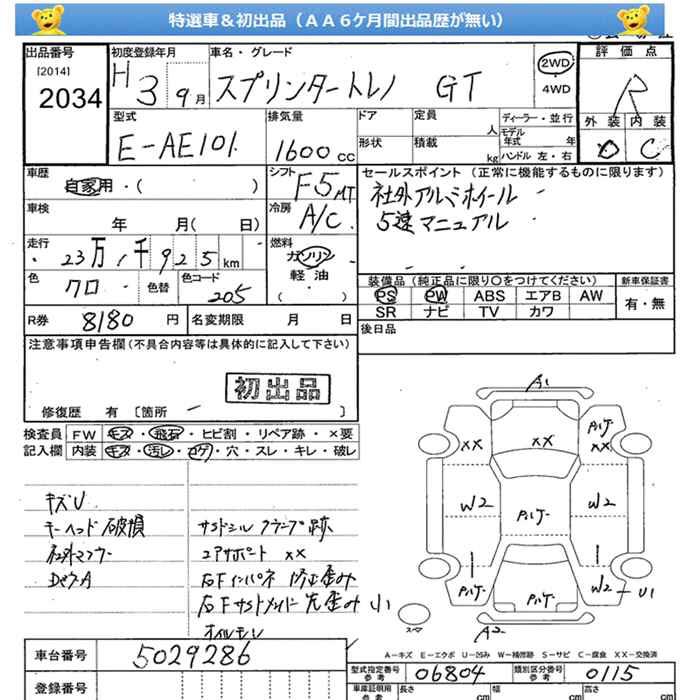 特選車＆初出品（ＡＡ６ケ月間出品歴が無い）
出品番号 初度登録年月 車名・グレード 評価点
[2014] 2034
H 3 9月 スプリンタートレノ GT 2WD 4WD R
外装 内装
D C
型式 排気量 ドア 定員 人 ディーラー・並行
E-AE101 1600cc 形状 積載 kg モデル年式 年
ハンドル 左・右
車歴 自家用・( )
シフト F5MT
セールスポイント（正常に機能するものに限ります）
社外アルミホイール
5速マニュアル
車検 年 月( 日)
冷房 A/C
走行 23万1千925km
燃料 ガソリン 軽油 ( )
色 クロ 色替 色コード 205
装備品（純正品に限り〇をつけてください） 新車保証書
PS PW ABS エアB AW 有・無
SR ナビ TV カワ
R券 8180円 名変期限 月 日
後日品
注意事項申告欄(不具合内容等は具体的に記入して下さい)
初出品
修復歴 有 [箇所 ]
検査員 記入欄
FW キズ・飛石・ヒビ割・リペア跡・×要
内装 キズ・汚レ・コゲ・穴・スレ・キレ・破レ
キズU
キーヘッド破損 サイドシル クランプ跡
社外マフラー コアサポート XX
右Fインパネ 修正歪み
右Fサイドメンバー先歪み 小
オイルモレ
A1
XX XX P1ケー XX
W2 P1ケー W2
P1ケー P1ケー W2 U1
スマ A2
A－キズ E－エクボ U－凹み W－補修跡 S－サビ C－腐食 XX－交換済
車台番号 5029286
登録番号
型式指定番号 参考 06804 類別区分番号 参考 0115
車庫証明用 参考 長さ cm 幅 cm 高さ cm